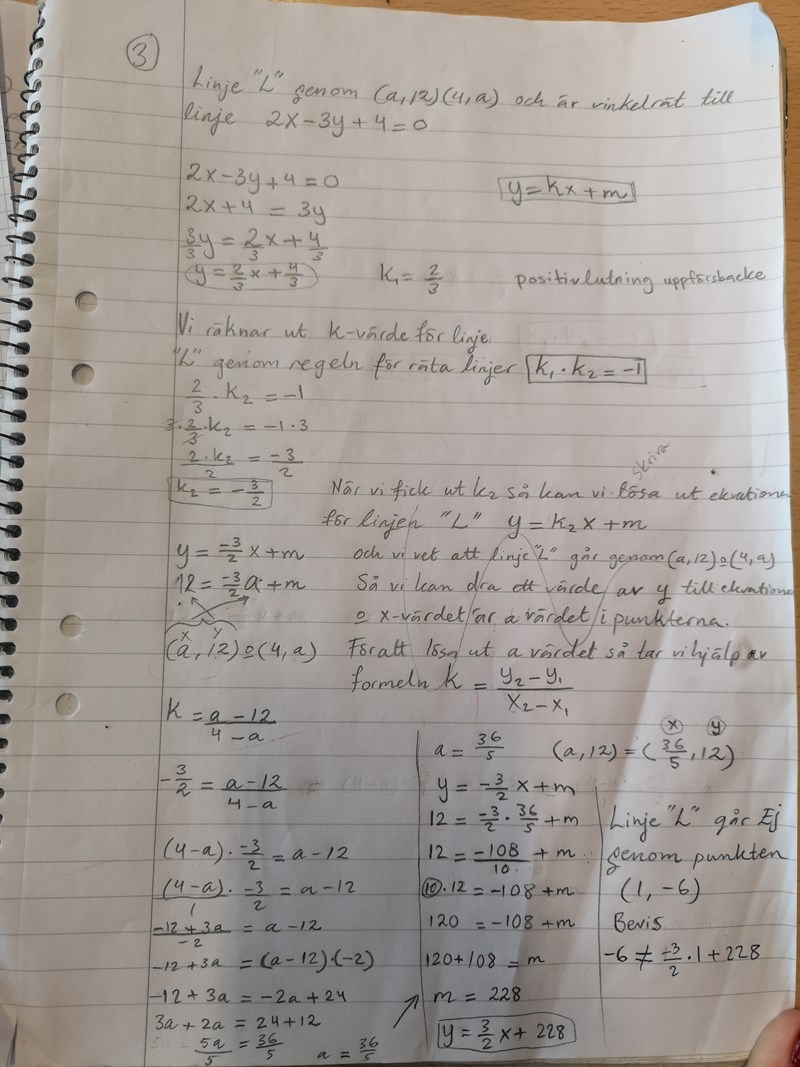 3
Linje "L" genom (a,12)(4,a) och är vinkelrät till
linje 2x-3y+4=0
2x-3y+4=0
y=kx+m
2x+4 = 3y
3y/3 = 2x/3 + 4/3
y = 2/3 x + 4/3
k₁ = 2/3
positivlutning uppförsbacke
Vi räknar ut k-värde för linje.
"L" genom regeln för räta linjer k₁ · k₂ = -1
2/3 · k₂ = -1
3 · 2/3 · k₂ = -1 · 3
2·k₂/2 = -3/2
k₂ = -3/2
När vi fick ut k₂ så kan vi lösa ut ekvationen
skriva
för linjen "L" y = k₂x+m
y = -3/2 x + m
och vi vet att linje "L" går genom (a,12) o (4,a)
12 = -3/2 a + m
Så vi kan dra ett värde av y till ekvationen
o x-värdet är a värdet i punkterna.
x y
(a,12) o (4,a)
För att lösa ut a värdet så tar vi hjälp av
formeln k = y₂-y₁/x₂-x₁
k = a-12/4-a
-3/2 = a-12/4-a
(4-a) · -3/2 = a-12
(4-a)/1 · -3/2 = a-12
-12+3a/-2 = a-12
-12+3a = (a-12)·(-2)
-12+3a = -2a+24
3a+2a = 24+12
5a/5 = 36/5 a = 36/5
x y
a = 36/5 (a,12) = (36/5, 12)
y = -3/2 x + m
12 = -3/2 · 36/5 + m
12 = -108/10 + m
10 · 12 = -108+m
120 = -108+m
120+108 = m
m = 228
y = 3/2 x + 228
Linje "L" går Ej
genom punkten
(1,-6)
Bevis
-6 ≠ -3/2 · 1 + 228